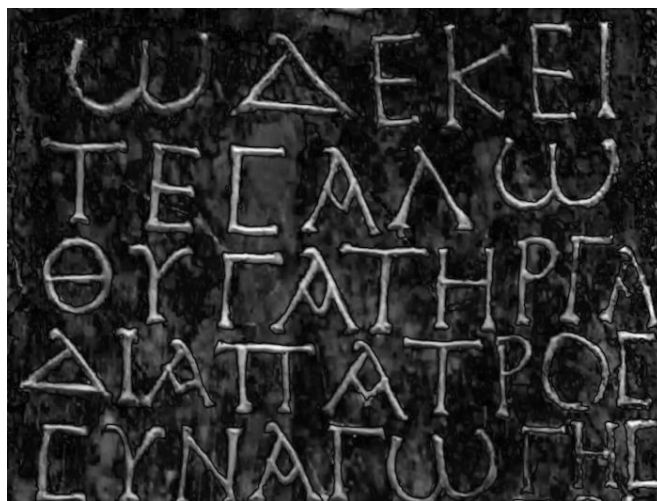 ΩΔΕΚΕΙ
ΤΕΣΑΛΩ
ΘΥΓΑΤΗΡΓΑ
ΔΙΑΠΑΤΡΟΣ
ΣΥΝΑΓΩΓΗΣ